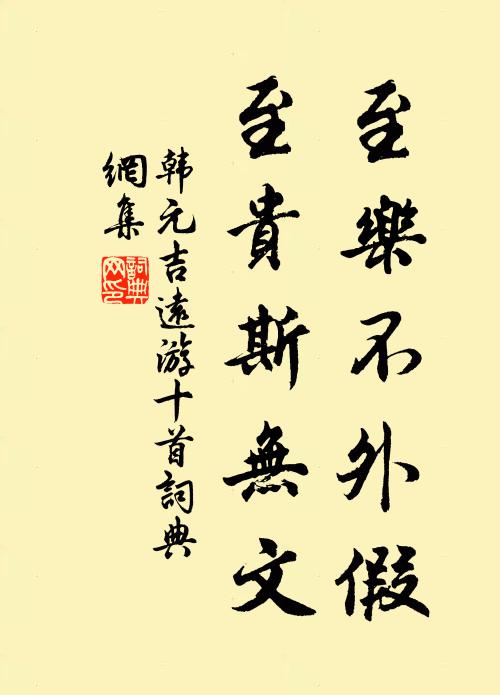 至樂不外假
至貴斯無文
韩元吉遠游十首詞典
網集
詞典
网印